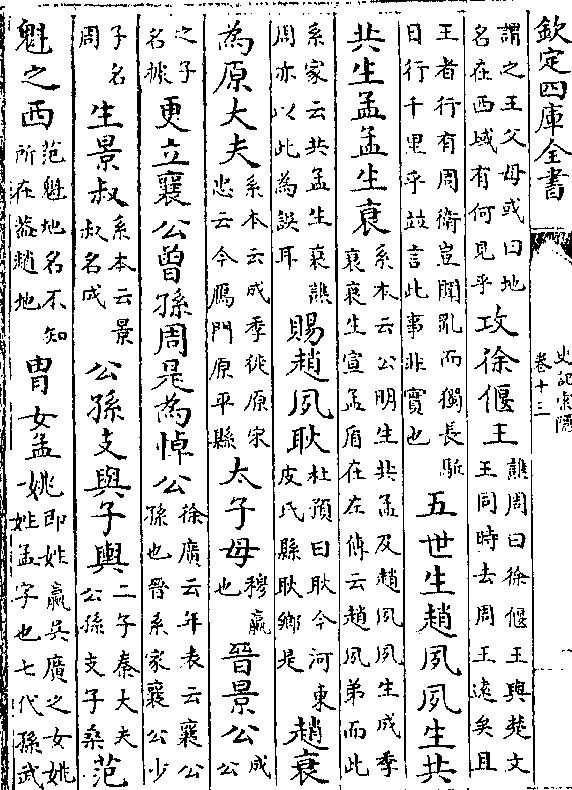 欽定四庫全書
史記索隱
卷十三
謂之王父母或曰地
名在西域有何見乎
攻徐偃王
譙周曰徐偃王與楚文
王同時去周王遠矣且
王者行有周衛豈聞亂而獨長驅
日行千里乎竝言此事非實也
五世生趙夙夙生共
共生孟孟生衰
系本云公明生共孟及趙夙夙生成季
衰衰生宣孟盾在左傳云趙夙弟而此
系家云共孟生衰譙
周亦以此為誤耳
賜趙夙耿
杜預曰耿今河東
皮氏縣耿鄉是
趙衰
為原大夫
系本云成季徙原宋
忠云今鴈門原平縣
太子母
穆嬴
也
晉景公
成
公
之子
名據
更立襄公曾孫周是為悼公
徐廣云年表云襄公
孫也晉系家襄公少
子名
周
生景叔
系本云景
叔名成
公孫支與子輿
二子秦大夫
公孫支子桑
范
魁之西
范魁地名不知
所在蓋趙地
冑女孟姚
即娃嬴吳廣之女姚
姓孟字也七代孫武